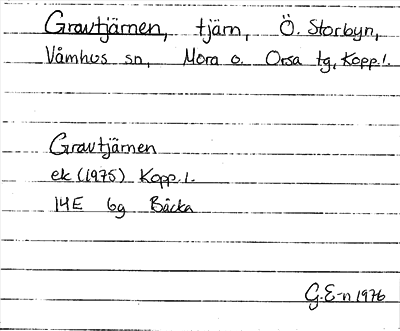 Gravtjärnen, tjärn, Ö. Storbyn,
Våmhus sn, Mora o. Orsa tg, Kopp. l.
Gravtjärnen
ek (1975) Kopp. l.
14E 6g Bäcka
G.E-n 1976